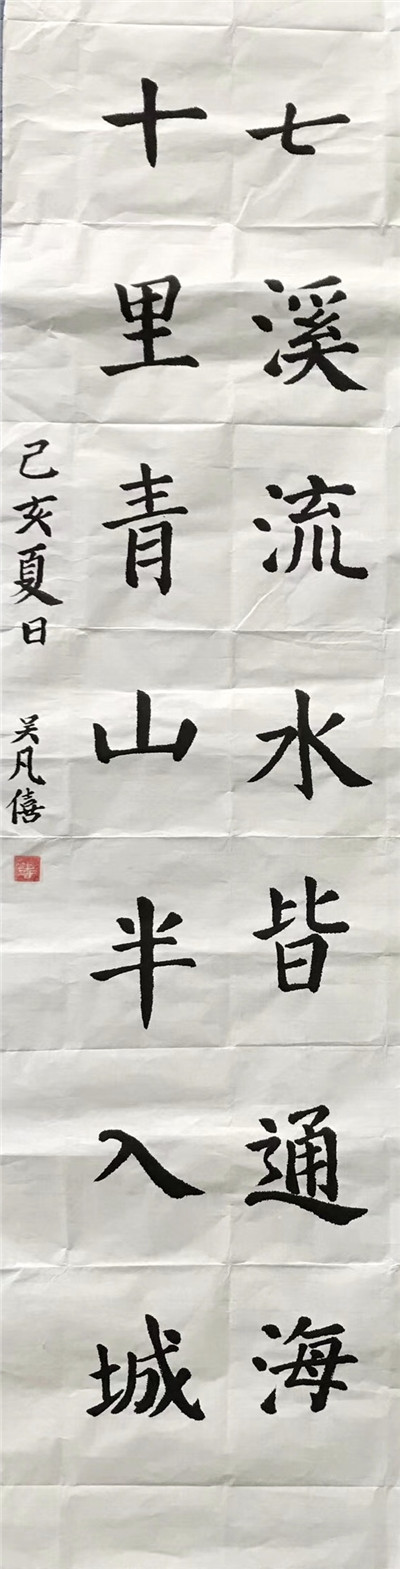 七溪流水皆通海
十里青山半入城
己亥夏日 吴凡僖